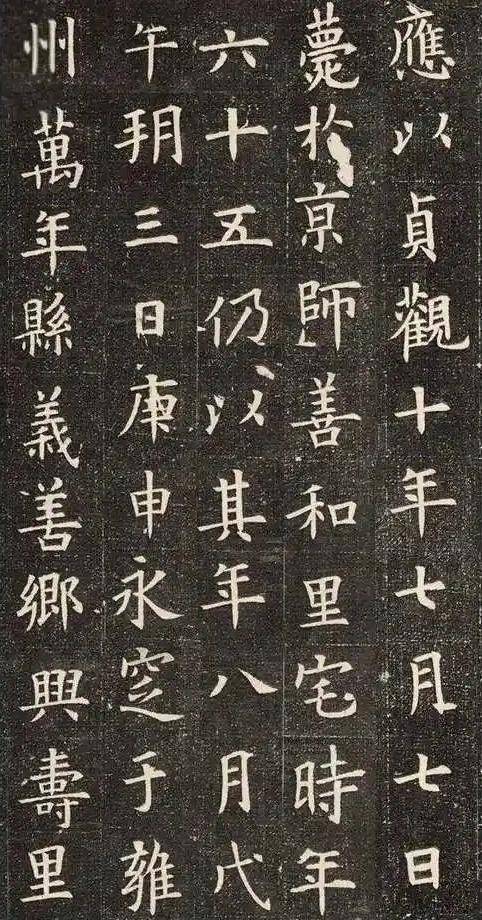 應以貞觀十年七月七日
薨於京師善和里宅時年
六十五仍以其年八月戊
午朔三日庚申永窆于雍
州萬年縣義善鄉興壽里